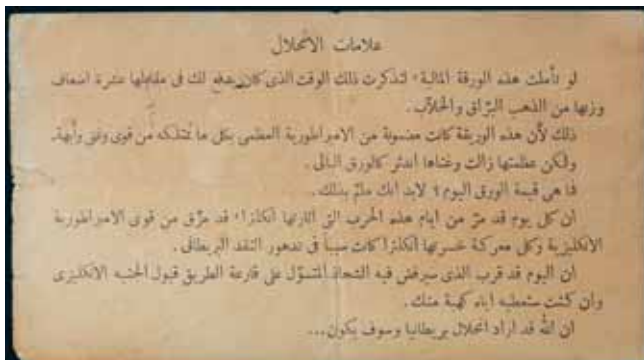 علامات الانحلال
لو تأملت هذه الورقة المالية، لتذكرت ذلك الوقت الذى كان يدفع لك فى مقابلها عشرة اضعاف
وزنها من الذهب البرّاق والخلاّب.
ذلك لأن هذه الورقة كانت مضمونة من الامبراطورية العظمى بكل ما تمتلكه من قوى وفن وأبهة.
ولكن عظمتها زالت وغناها اندثر كالورق البالى.
فما هى قيمة الورق اليوم؟ لابد انك ملمّ بذلك.
ان كل يوم قد مرّ من ايام هذه الحرب التى اثارتها انكلترا، قد مزّق من قوى الامبراطورية
الانكليزية وكل معركة خسرتها انكلترا كانت سبباً فى تدهور النقد البريطانى.
ان اليوم قد قرب الذى سيرفض فيه الشحاذ المتسوّل على قارعة الطريق قبول الجنيه الانكليزى
وان كنت ستعطيه اياه كهبة منك.
ان الله قد اراد انحلال بريطانيا وسوف يكون...